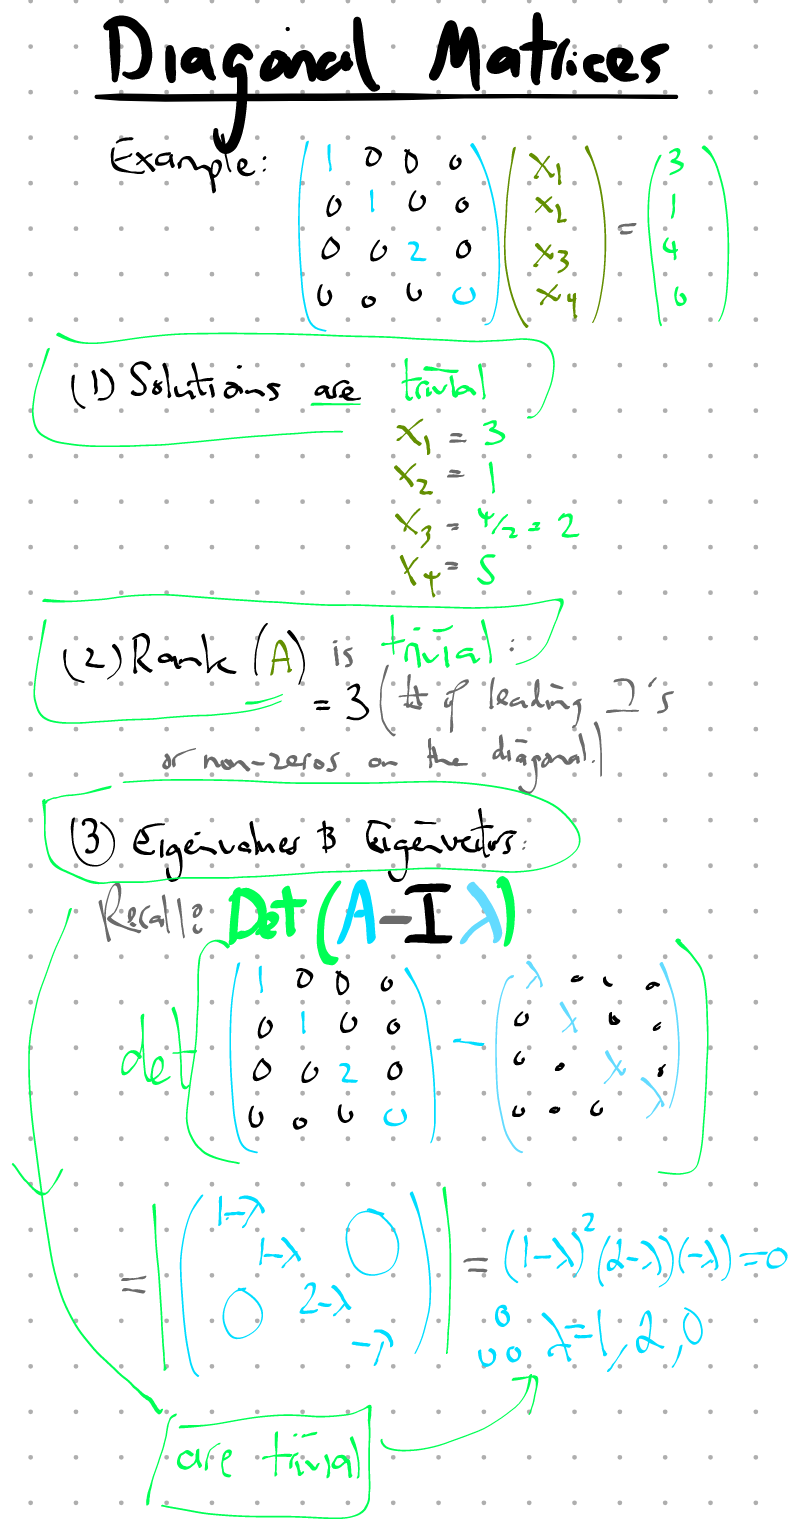 Diagonal Matrices
Example: (1 0 0 0) (x₁) (3)
(0 1 0 0) (x₂) = (1)
(0 0 2 0) (x₃) (4)
(0 0 0 0) (x₄) (0)
(1) Solutions are trivial
x₁ = 3
x₂ = 1
x₃ = 4/2 = 2
x₄ = S
(2) Rank (A) is trivial:
= 3 (# of leading 1's
or non-zeros on the diagonal.)
(3) Eigenvalues & Eigenvectors:
Recall: Det (A - I λ)
1 0 0 0 λ 0 0 0
0 1 0 0 0 λ 0 0
det 0 0 2 0 - 0 0 λ 0
0 0 0 0 0 0 0 λ
1-λ
1-λ 0
= 0 2-λ = (1-λ)² (2-λ)(-λ) = 0
-λ ∴ λ = 1, 2, 0
are trivial